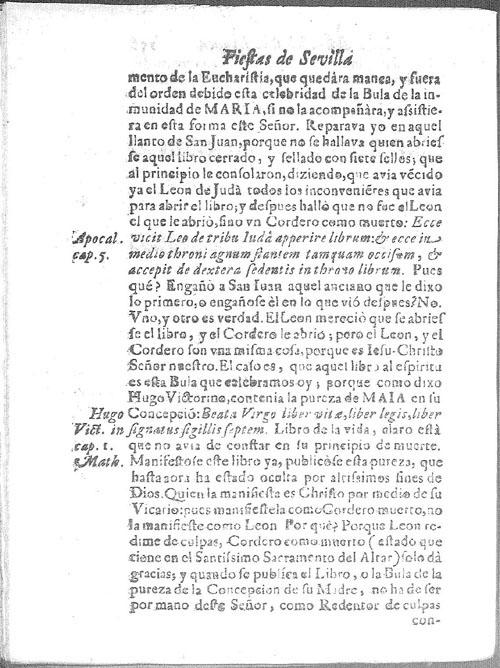 Fiestas de Sevilla
mento de la Eucharistia, que quedàra manca, y fuera
del orden debido esta celebridad de la Bula de la in-
munidad de MARIA, si no la acompañàra, y assistie-
ra en esta forma este Señor. Reparava yo en aquel
llanto de San Juan, porque no se hallava quien abries-
se aquel libro cerrado, y sellado con siete sellos; que
al principio le consolaron, diziendo, que avia vẽcido
ya el Leon de Judà todos los inconveniẽtes que avia
para abrir el libro; y despues hallò que no fue el Leon
el que le abriò, sino vn Cordero como muerto: Ecce
Apocal. vicit Leo de tribu Iudâ apperire librum: & ecce in
cap. 5. medio throni agnum stantem tamquam occisum, &
accepit de dextera sedentis in throno librum. Pues
què? Engañò a San Iuan aquel anciano que le dixo
lo primero, o engañose èl en lo que viò despues? No.
Vno, y otro es verdad. El Leon mereciò que se abries
se el libro, y el Cordero le abriò; pero el Leon, y el
Cordero son vna misma cosa, porque es Iesu-Christo
Señor nuestro. El caso es, que aquel libro al espiritu
es esta Bula que celebramos oy; porque como dixo
Hugo Victorino, contenia la pureza de MAIA en su
Hugo Concepciõ: Beata Virgo liber vitæ, liber legis, liber
Vict. in signatus sigillis septem. Libro de la vida, claro està
cap. 1. que no avia de constar en su principio de muerte.
Math. Manifestose este libro ya, publicòse esta pureza, que
hasta aora ha estado oculta por altissimos fines de
Dios. Quien la manifiesta es Christo por medio de su
Vicario: pues manifiestela como Cordero muerto, no
la manifieste como Leon Por què? Porque Leon re-
dime de culpas, Cordero como muerto ( estado que
tiene en el Santissimo Sacramento del Altar) solo dà
gracias; y quando se publica el Libro, o la Bula de la
pureza de la Concepcion de su Madre, no ha de ser
por mano deste Señor, como Redentor de culpas
con-